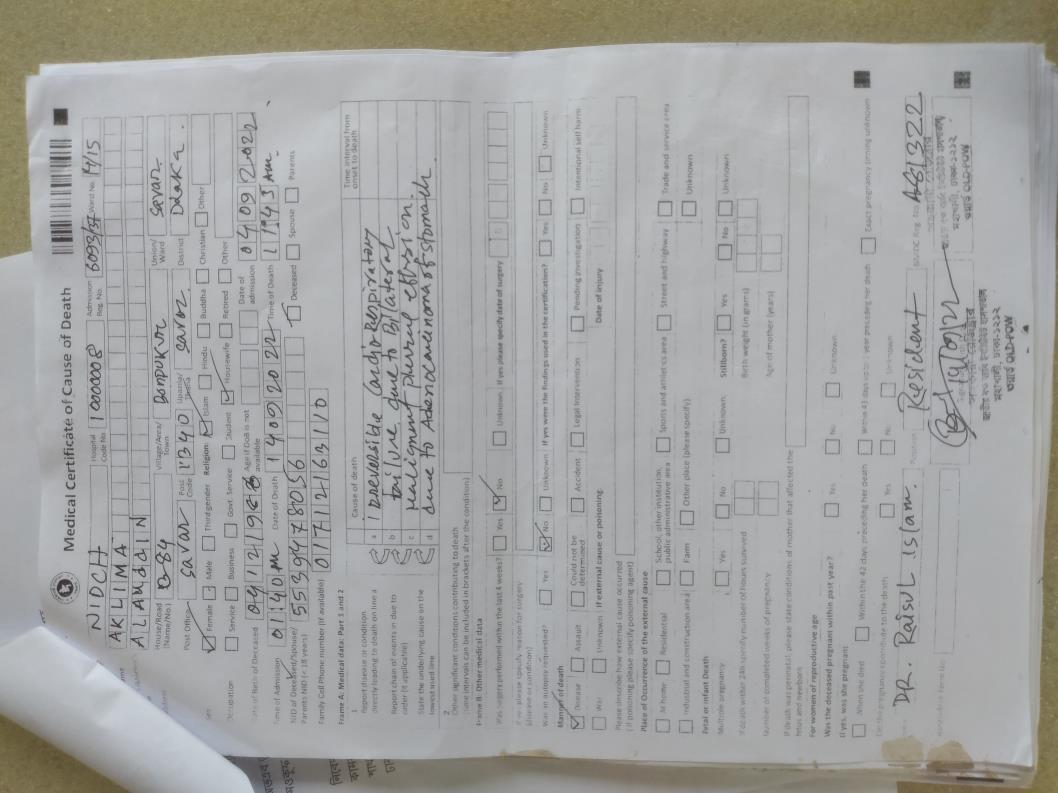 Medical Certificate of Cause of Death
NIDCH
Hospital Code No 10000008
Admission Reg. No. 6093/37
Ward No. 14/15
AKLIMA
ALAMDDIN
House/Road (Name/No.) D-84
Village/Area/Town Bonpukur
Union/Ward Savar
Post Office Savar
Post Code 1340
Upazila/Thana Savar
District Dhaka
Female Male Third gender Religion: Islam Hindu Buddha Christian Other
Occupation Service Business Govt. Service Student Housewife Retired Other
Date of Birth of Deceased 04121983
Age if DoB is not available
Date of admission 04092022
Time of Admission 0140 Am
Date of Death 14092022
Time of Death 1143 Am.
NID of Deceased/Spouse/Parents NID (< 18 years) 5539478056
Deceased Spouse Parents
Family Cell Phone number (If available) 01711263110
Frame A: Medical data: Part 1 and 2
Cause of death
Time interval from onset to death
1
Report disease or condition directly leading to death on line a
Report chain of events in due to order (if applicable)
State the underlying cause on the lowest used line
a Irreversible Cardio Respiratory
b failure due to Bilateral
c Malignment pleural effusion.
d due to Adenocarcinoma of stomach
2
Other significant conditions contributing to death
(time intervals can be included in brackets after the condition)
Frame B: Other medical data
Was surgery performed within the last 4 weeks? Yes No Unknown If yes please specify date of surgery
If yes please specify reason for surgery (disease or condition)
Was an autopsy requested? Yes No Unknown If yes were the findings used in the certification? Yes No Unknown
Manner of death
Disease Assault Could not be determined Accident Legal Intervention Pending investigation Intentional self harm
War Unknown If external cause or poisoning Date of injury
Please describe how external cause occurred
(If poisoning please specify poisoning agent)
Place of Occurrence of the external cause
At home Residential School, other institution, public administrative area Sports and athletics area Street and highway Trade and service area
Industrial and construction area Farm Other place (please specify) Unknown
Fetal or Infant Death
Multiple pregnancy Yes No Unknown Stillborn? Yes No Unknown
If death within 24h specify number of hours survived Birth weight (in grams)
Number of completed weeks of pregnancy Age of mother (years)
If death was perinatal, please state conditions of mother that affected the fetus and newborn
For women of reproductive age
Was the deceased pregnant within past year? Yes No Unknown
If yes, was she pregnant
When she died Within the 42 days preceding her death Within 43 days up to 1 year preceding her death Exact pregnancy timing unknown
Did the pregnancy contribute to the death Yes No Unknown
DR. Raisul Islam.
Resident
BMDC Reg. No.
14/09/22
মহাখালী, ঢাকা-১২১২
ওয়ার্ড OLD-POW